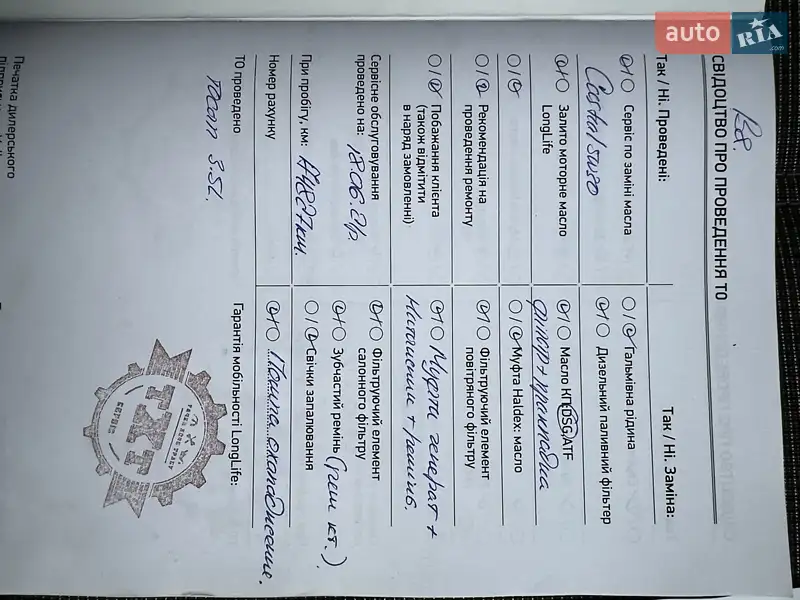 auto RIA.com
R8.
СВІДОЦТВО ПРО ПРОВЕДЕННЯ ТО
Так / Ні. Проведені:
Сервіс по заміні масла
Castrol 5w30
Залито моторне масло
LongLife
Рекомендація на
проведення ремонту
Побажання клієнта
(також відмітити
в наряд замовленні)
Сервісне обслуговування
проведено на: 18.06.21р.
При пробігу, км:
Номер рахунку
ТО проведено
Так / Ні. Заміна:
Гальмівна рідина
Дизельний паливний фільтер
Масло КП/DSG/ATF
фільтр + прокладка
Муфта Haldex: масло
Фільтруючий елемент
повітряного фільтру
Муфта генерат +
Натяжений + ремінь.
Фільтруючий елемент
салонного фільтру
Зубчастий ремінь (грм кт.)
Свічки запалювання
Помпа охолодження.
Гарантія мобільності LongLife:
ТХТ
СЕРВІС
Печатка дилерського